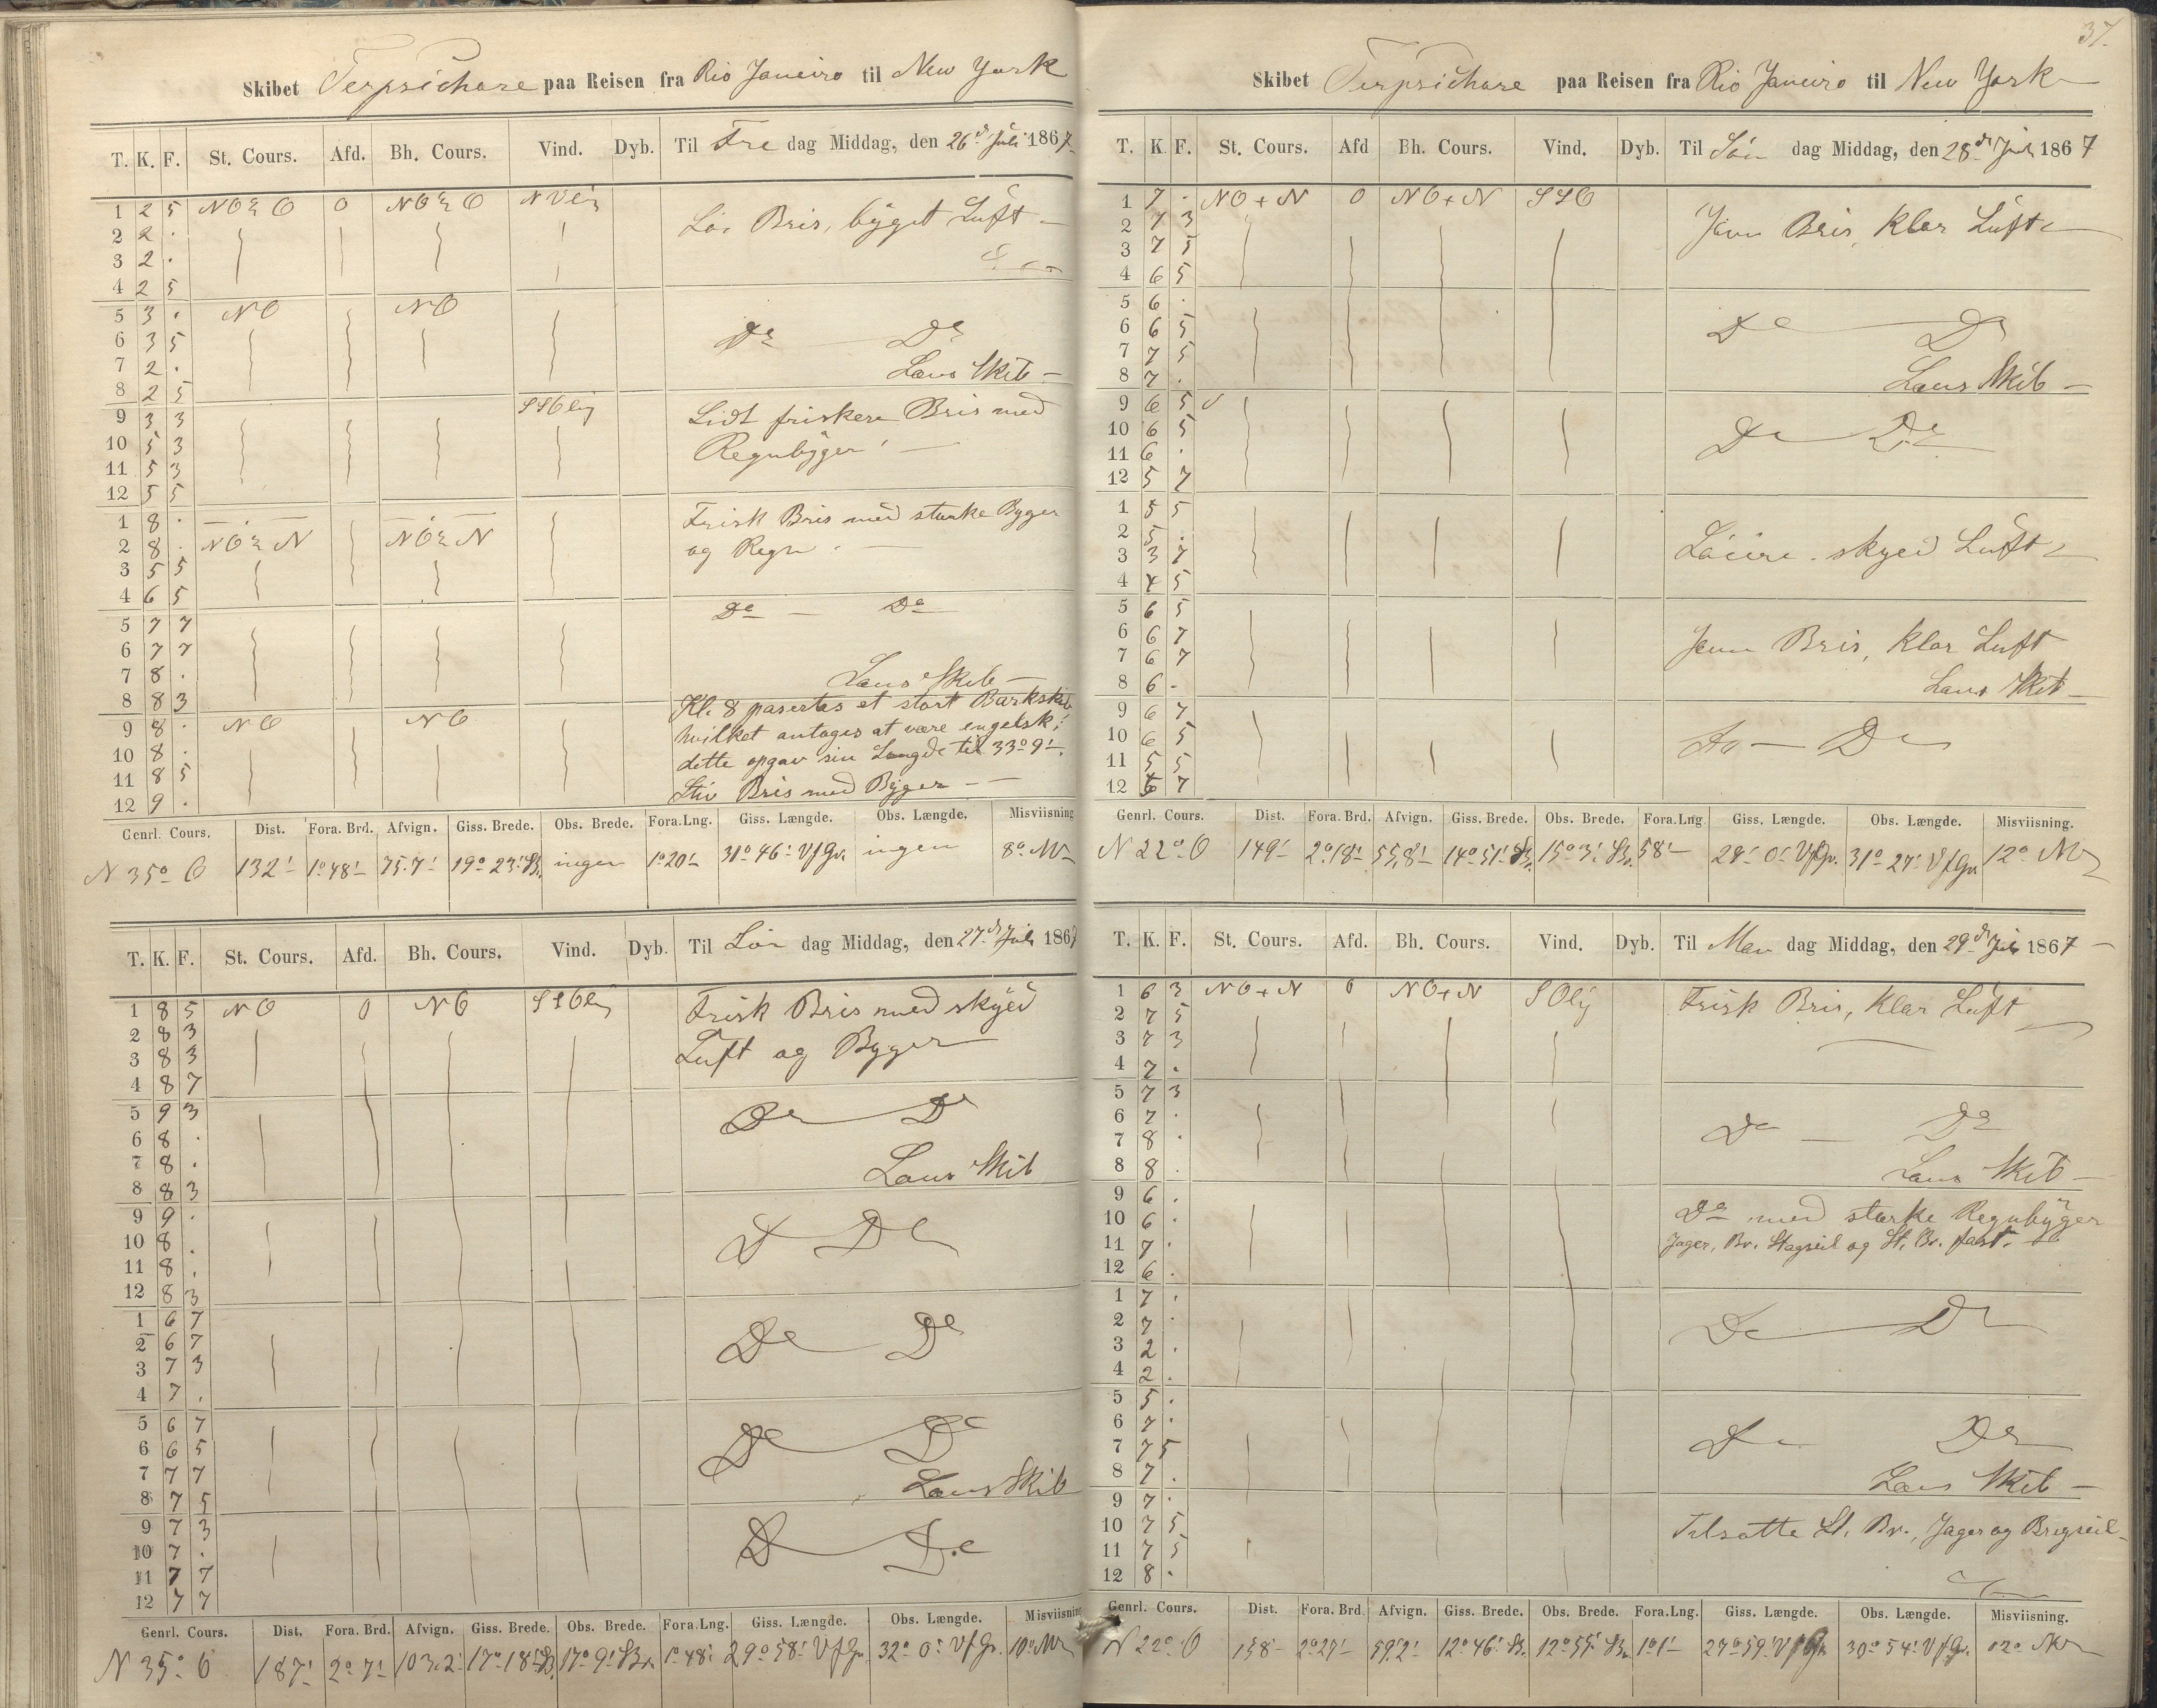 Skibet Terpsichore paa Reisen fra Rio Janeiro til New York
T. K. F. St. Cours. Afd. Bh. Cours. Vind. Dyb. Til Fre dag Middag, den 26d Juli 1867
1 2 5 NO O O NO O
Lös Bris, byget Luft
2 2 .
3 2 .
4 2 5
5 3 . NO NO
6 3 5 Do Do
7 2 .
Lens Skib
8 2 5
9 3 3 Lidt friskere Bris med
10 5 3 Regnbyger
11 5 3
12 5 5
1 8 . Frisk Bris med stærke Byger
2 8 . NO N NO N og Regn
3 5 5
4 6 5
Do Do
5 7 7
6 7 7
7 8 . Lens Skib
8 8 3 Kl. 8 paserte et stort Barkskib
9 8 . NO NO hvilket antages at være engelsk;
10 8 . dette opgav sin Længde til 33° 9'
11 8 5
12 9 . Stiv Bris med Byger
Genrl. Cours. Dist. Fora. Brd. Afvign. Giss. Brede. Obs. Brede. Fora. Lng. Giss. Længde. Obs. Længde. Misviisning
N 35° O 132' 1° 48' 75.7' 19° 23' B. ingen 1° 20' 31° 46' V f Gr. ingen 8° NV
T. K. F. St. Cours. Afd. Bh. Cours. Vind. Dyb. Til Lör dag Middag, den 27d Juli 1867
1 8 5 NO O NO Frisk Bris med skyed
2 8 3 Luft og Byger
3 8 3
4 8 7
5 9 3 Do Do
6 8 .
7 8 . Lens Skib
8 8 3
9 9 .
10 8 . Do Do
11 8 .
12 8 3
1 6 7
2 6 7 Do Do
3 7 3
4 7 .
5 6 7
6 6 5 Do Do
7 7 7 Lens Skib
8 7 5
9 7 3
10 7 . Do Do
11 7 7
12 7 7
Genrl. Cours. Dist. Fora. Brd. Afvign. Giss. Brede. Obs. Brede. Fora. Lng. Giss. Længde. Obs. Længde. Misviisning
N 35° O 187' 2° 7' 103.2' 17° 18' B. 17° 9' Br. 1° 48' 29° 58' V f Gr. 32° 0' V f Gr. 10° NV
37.
Skibet Terpsichore paa Reisen fra Rio Janeiro til New York
T. K. F. St. Cours. Afd Bh. Cours. Vind. Dyb. Til Sön dag Middag, den 28d Juli 1867
1 7 . NO + N O NO + N SSO
2 7 3 Jevn Bris, Klar Luft
3 7 5
4 6 5
5 6 .
6 6 5 Do Do
7 7 5
8 7 . Lens Skib
9 6 5
10 6 5 Do Do
11 6 .
12 5 7
1 5 5
2 5 .
3 3 7 Löiere skyed Luft
4 4 5
5 6 5
6 6 7 Jevn Bris, Klar Luft
7 6 7
8 6 . Lens Skib
9 6 7
10 6 5 Do Do
11 5 5
12 6 7
Genrl. Cours. Dist. Fora. Brd. Afvign. Giss. Brede. Obs. Brede. Fora. Lng. Giss. Længde. Obs. Længde. Misviisning.
N 22° O 149' 2° 18' 55,8' 14° 51' Br. 15° 3' Br. 58' 29° 0' V f Gr. 31° 27' V f Gr. 12° NV
T. K. F. St. Cours. Afd. Bh. Cours. Vind. Dyb. Til Man dag Middag, den 29d Juli 1867
1 6 3 NO + N O NO + N SOlig Frisk Bris, Klar Luft
2 7 5
3 7 3
4 7 .
5 7 3
6 7 . Do Do
7 8 .
8 8 . Lens Skib
9 6 . Do med stærke Regnbyger
10 6 . Jager, Br. Stagseil og St. Br. fast.
11 7 .
12 6 .
1 7 .
2 7 . Do Do
3 2 .
4 2 .
5 5 .
6 7 . Do Do
7 7 5
8 7 . Lens Skib
9 7 .
10 7 5 Tilsatte St. Br., Jager og Bregseil
11 7 5
12 8 .
Genrl. Cours. Dist. Fora. Brd. Afvign. Giss. Brede. Obs. Brede. Fora. Lng. Giss. Længde. Obs. Længde. Misviisning.
N 22° O 158 2° 27' 59.2' 12° 46' Br. 12° 55' Br. 1° 1' 27° 59' V f Gr. 30° 54' V f Gr. 12° NV